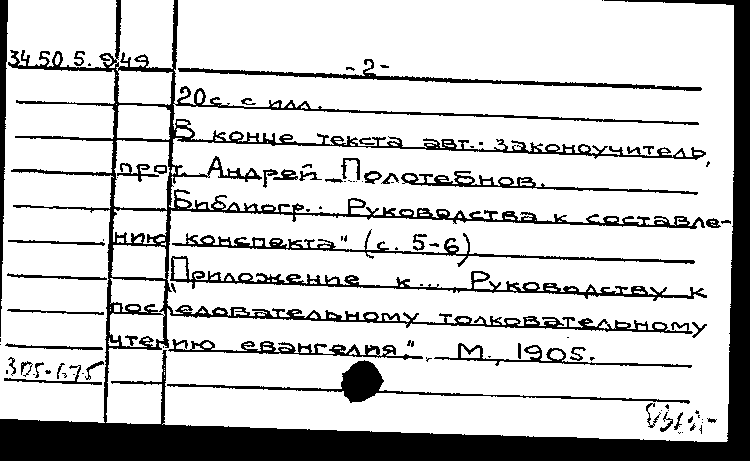 34.50.5.949 -2-
20с. с илл.
В конце текста авт.: законоучитель,
прот. Андрей Полотебнов.
Библиогр.: "Руководства к составле-
нию конспекта" (с. 5-6)
"Приложение к... "Руководству к
последовательному толковательному
чтению евангелия". М., 1905.
305-675